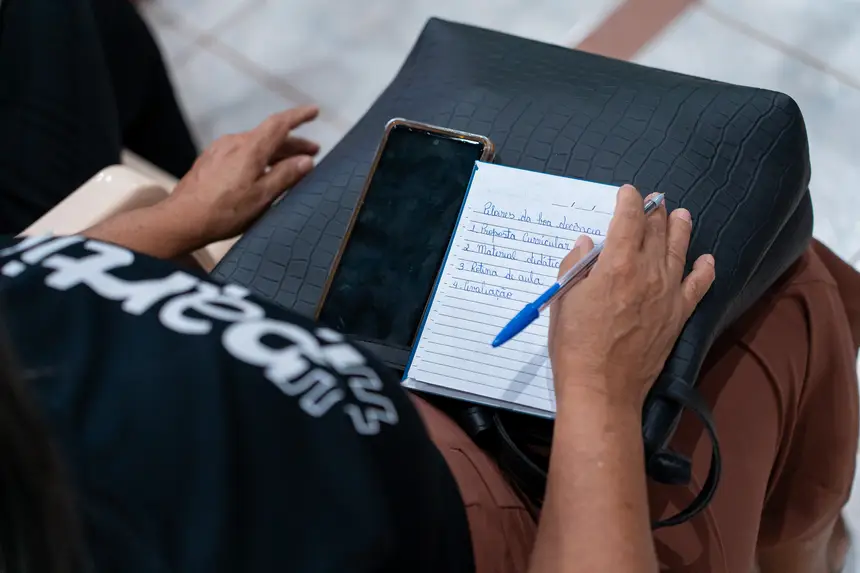 __/__/__
Pilares da boa docência
1. Proposta Curricular
2. Material didático
3. Rotina de aula
4. Avaliação